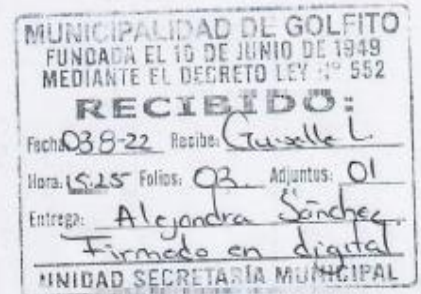 MUNICIPALIDAD DE GOLFITO
FUNDADA EL 10 DE JUNIO DE 1949
MEDIANTE EL DECRETO LEY Nº 552
RECIBIDO:
Fecha 03 8-22 Recibe: Guiselle L.
Hora: 15:25 Folios: 03 Adjuntos: 01
Entrega: Alejandra Sánchez
Firmado en digital
UNIDAD SECRETARÍA MUNICIPAL